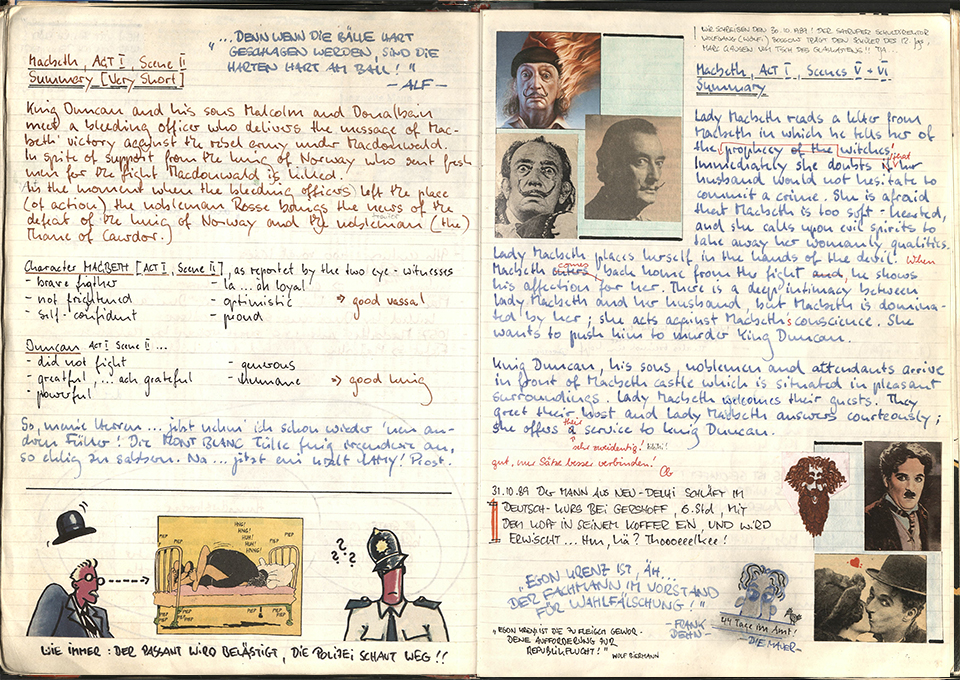 "... DENN WENN DIE BÄLLE HART
GESCHLAGEN WERDEN, SIND DIE
HARTEN HART AM BALL!"
- ALF -
Macbeth, Act I, Scene II
Summery [Very Short]
King Duncan and his sons Malcolm and Donalbain
meet a bleeding officer who delivers the message of Mac-
beth' victory against the rebel army under Macdonwald.
In spite of support from the king of Norway who sent fresh
men for the fight Macdonwald is killed.
In the moment when the bleeding officer left the place
(of action) the nobleman Rosse brings the news of the
defeat of the king of Norway and the nobleman (the)
Thane of Cawdor.)
Character MACBETH [ACT I, Scene II], as reported by the two eye-witnesses
- brave figther
- la... oh loyal
- not frightened
- optimistic
⇒ good vassal
- self-confident
- proud
Duncan ACT I Scene II ...
- did not fight
- generous
- greatful, ... ach grateful
- humane
⇒ good king
- powerful
So, meine Herren ... jetzt nehm' ich schon wieder 'nen an-
dren Füller! Die MONT BLANC Tülle fing irgendwie an,
so eklig zu sabbern. Na ... jetzt ein LAMY! Prost.
HNG!
HNG!
HUH!
HUH!
HNNG!
PIEP
PIEP
PIEP
PIEP
PIEP
PIEP
? ? ?
WIE IMMER: DER PASSANT WIRD BELÄSTIGT, DIE POLIZEI SCHAUT WEG!!
WIR SCHREIBEN DEN 30.10.1989! DER SATRUPER SCHULDIREKTOR
WOLFGANG (WOLFI) TRÄGT DEN SCHÜLER DES 12 Jgs,
MARC CLAUSEN
Macbeth, Act I, Scenes V + VI
Summary
Lady Macbeth reads a letter from
Macbeth in which he tells her of
the prophecy of the witches!
Immediately she doubts that her
husband would not hesitate to
commit a crime. She is afraid
that Macbeth is too soft-hearted,
and she calls upon evil spirits to
take away her womanly qualities.
Lady Macbeth places herself in the hands of the devil. When
Macbeth comes back home from the fight and, he shows
his affection for her. There is a deep intimacy between
lady Macbeth and her husband, but Macbeth is domina-
ted by her; she acts against Macbeth's conscience. She
wants to push him to murder King Duncan.
King Duncan, his sons, noblemen and attendants arrive
in front of Macbeth castle which is situated in pleasant
surroundings. Lady Macbeth welcomes their guests. They
greet their host and lady Macbeth answers courteously;
she offers their service to King Duncan.
gut, nur Sätze besser verbinden!
31.10.89 DER MANN AUS NEU-DELHI SCHLÄFT IM
DEUTSCH-KURS BEI GERSHOFF, 6. Std, MIT
DEM KOPF IN SEINEM KOFFER EIN, UND WIRD
ERWISCHT... Hm, hä? Thoooeeelkee!
"EGON KRENZ IST, ÄH...
DER FACHMANN IM VORSTAND
FÜR WAHLFÄLSCHUNG!"
- FRANK DEHN -
44 Tage im Amt!
- DIE MAUER -
"EGON KRENZ IST DIE ZU FLEISCH GEWOR-
DENE AUFFORDERUNG ZUR
REPUBLIKFLUCHT!" WOLF BIERMANN